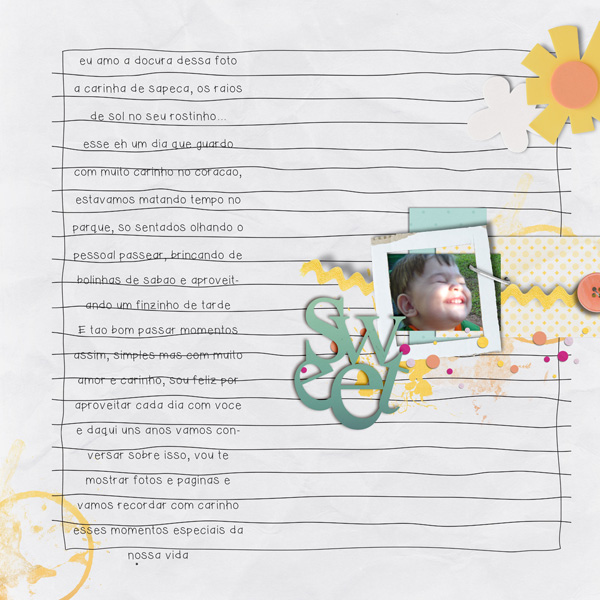 eu amo a docura dessa foto
a carinha de sapeca, os raios
de sol no seu rostinho...
esse eh um dia que guardo
com muito carinho no coracao,
estavamos matando tempo no
parque, so sentados olhando o
pessoal passear, brincando de
bolinhas de sabao e aproveit-
ando um finzinho de tarde
E tao bom passar momentos
assim, simples mas com muito
amor e carinho, sou feliz por
aproveitar cada dia com voce
e daqui uns anos vamos con-
versar sobre isso, vou te
mostrar fotos e paginas e
vamos recordar com carinho
esses momentos especiais da
nossa vida
sweet